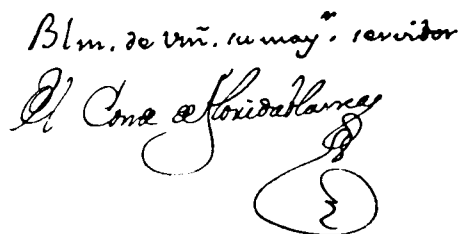 Blm. de vm̃. su mayr. servidor
El Conde de Floridablanca